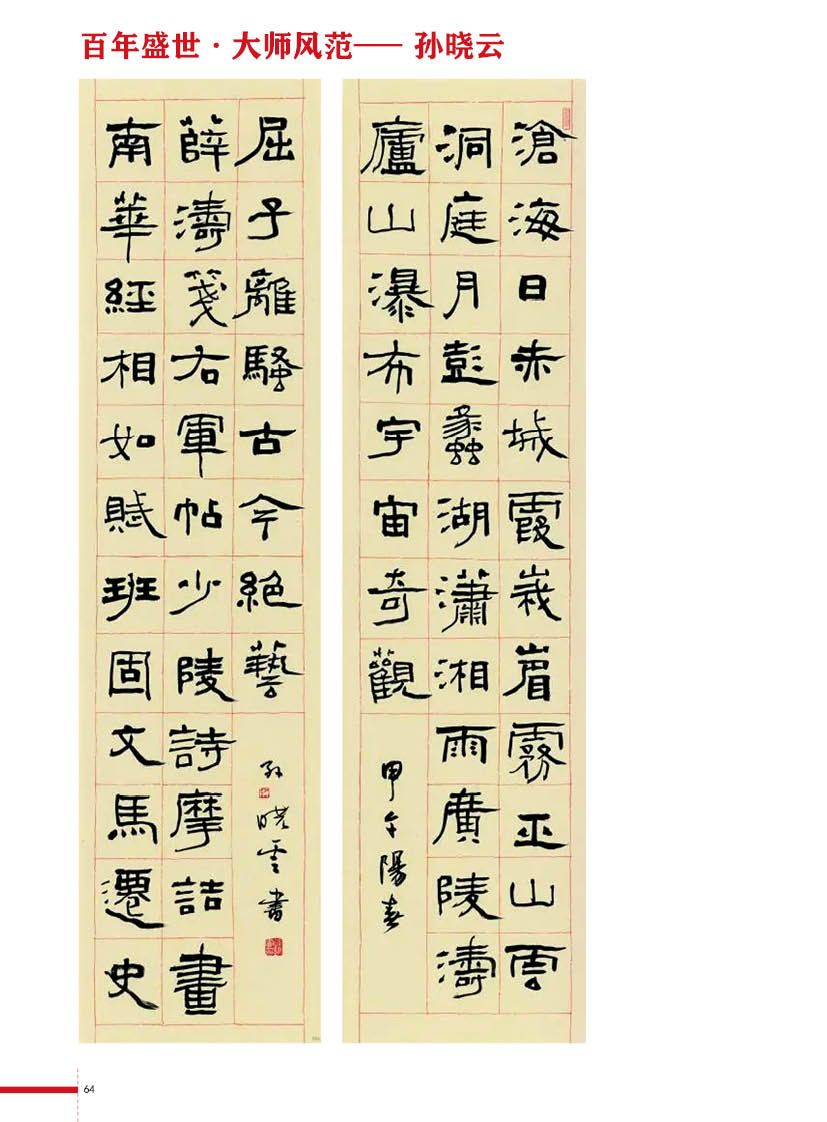 百年盛世·大师风范—— 孙晓云
滄海日赤城霞峩眉霧巫山雲
洞庭月彭蠡湖瀟湘雨廣陵濤
廬山瀑布宇宙奇觀
甲午陽春
南華經相如賦班固文馬遷史
薛濤箋右軍帖少陵詩摩詰畫
屈子離騷古今絕藝
孫曉雲書
64